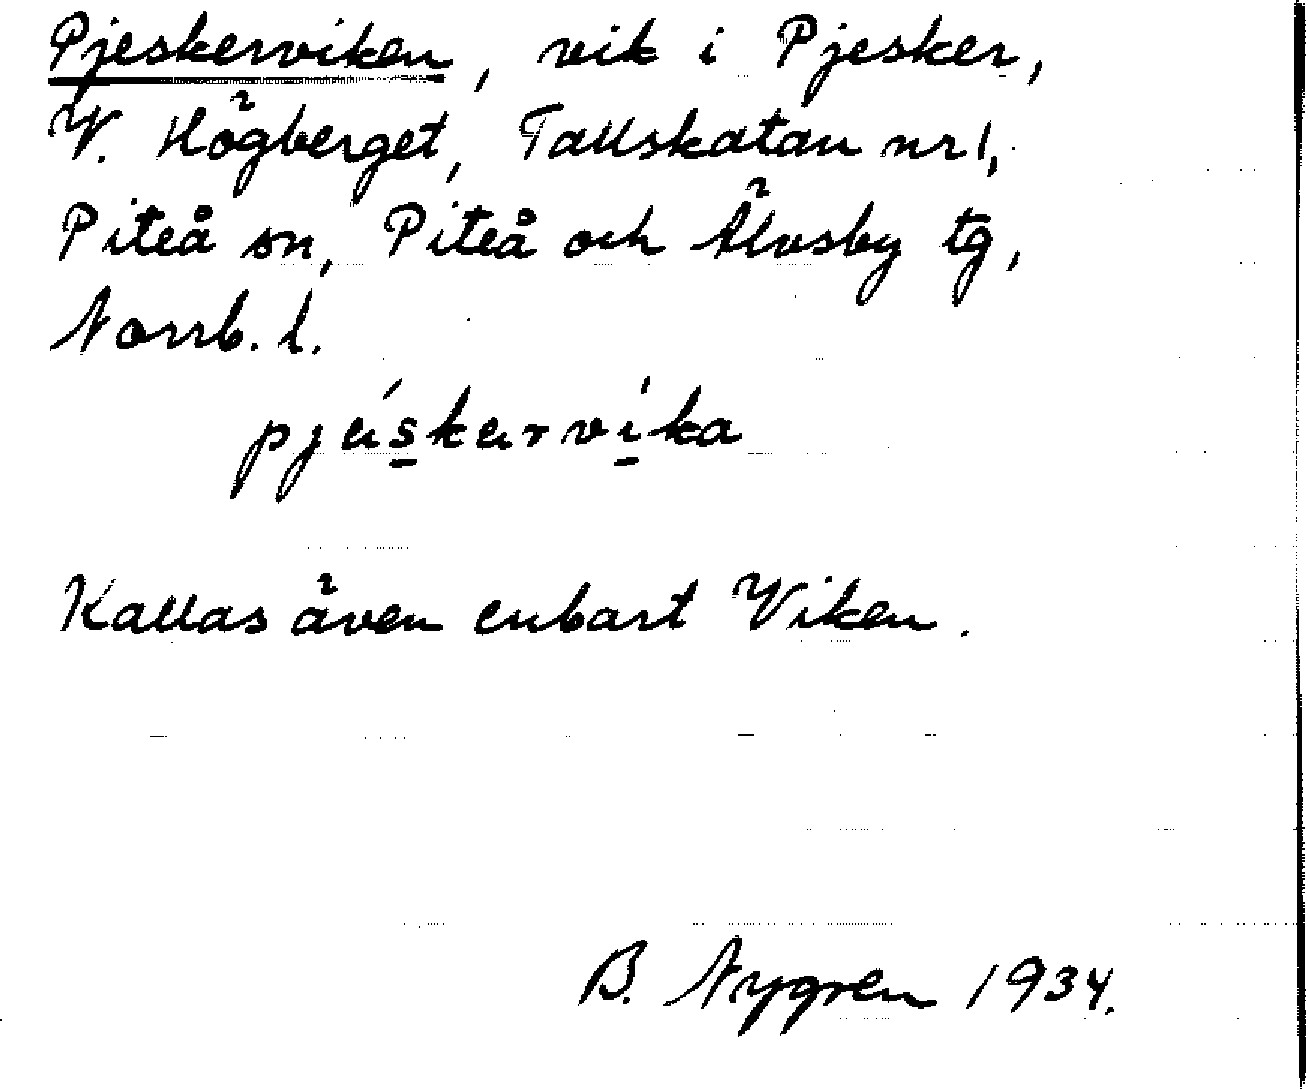 Pjeskerviken, vik i Pjesker,
V. Högberget, Tallskatan nr 1,
Piteå sn, Piteå och Älvsby tg,
Norrb. l.
pjéskervíka
Kallas även enbart Viken.
B. Nygren 1934.